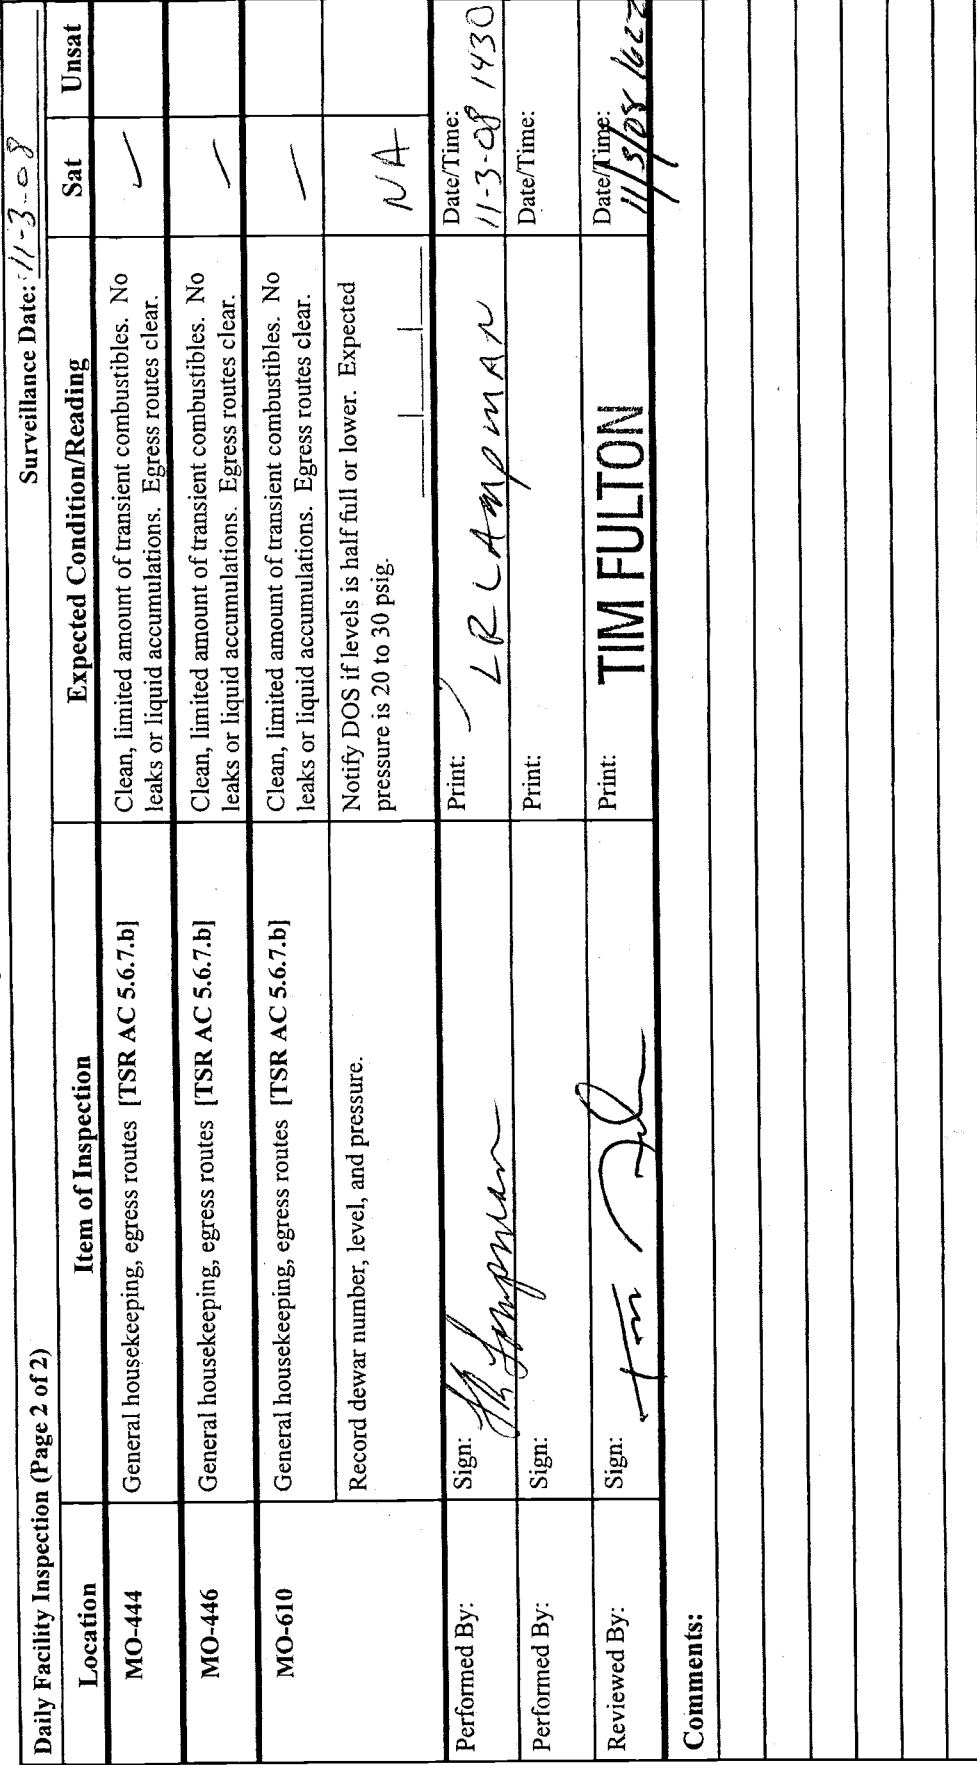 Daily Facility Inspection (Page 2 of 2) Surveillance Date: 11-3-08
Location Item of Inspection Expected Condition/Reading Sat Unsat
MO-444 General housekeeping, egress routes [TSR AC 5.6.7.b] Clean, limited amount of transient combustibles. No ✓
leaks or liquid accumulations. Egress routes clear.
MO-446 General housekeeping, egress routes [TSR AC 5.6.7.b] Clean, limited amount of transient combustibles. No ✓
leaks or liquid accumulations. Egress routes clear.
MO-610 General housekeeping, egress routes [TSR AC 5.6.7.b] Clean, limited amount of transient combustibles. No ✓
leaks or liquid accumulations. Egress routes clear.
Record dewar number, level, and pressure. Notify DOS if levels is half full or lower. Expected NA
pressure is 20 to 30 psig. ____|____|____
Performed By: Sign: LR Lampman Print: LR LAMPMAN Date/Time:
11-3-08 1430
Performed By: Sign: Print: Date/Time:
Reviewed By: Sign: Tim Print: TIM FULTON Date/Time:
11/3/08 1622
Comments: